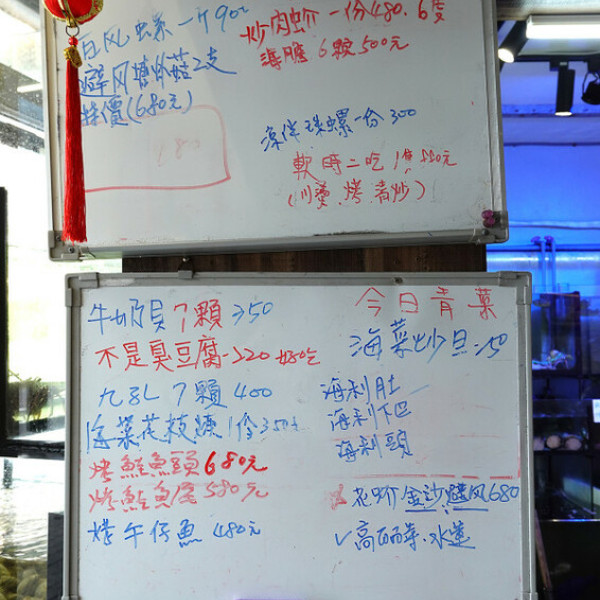 白风螺一斤90元
避风塘炒菇2支
特價(680元)
180
炒肉蚧一份480.6隻
海膽6顆500元
涼伴珠螺一份300
軟時二吃1隻550元
(川燙.烤.煮炒)
牛奶貝7顆350
不是臭豆腐-220 好吃
九孔7顆400
海菜花枝煉1份350元
烤鮭魚頭680元
烤鮭魚尾580元
烤午仔魚480元
今日青菜
海菜炒旦150
海刺肚
海刺下巴
海刺頭
花蚧金沙.避风680
✓高麗菜.水蓮